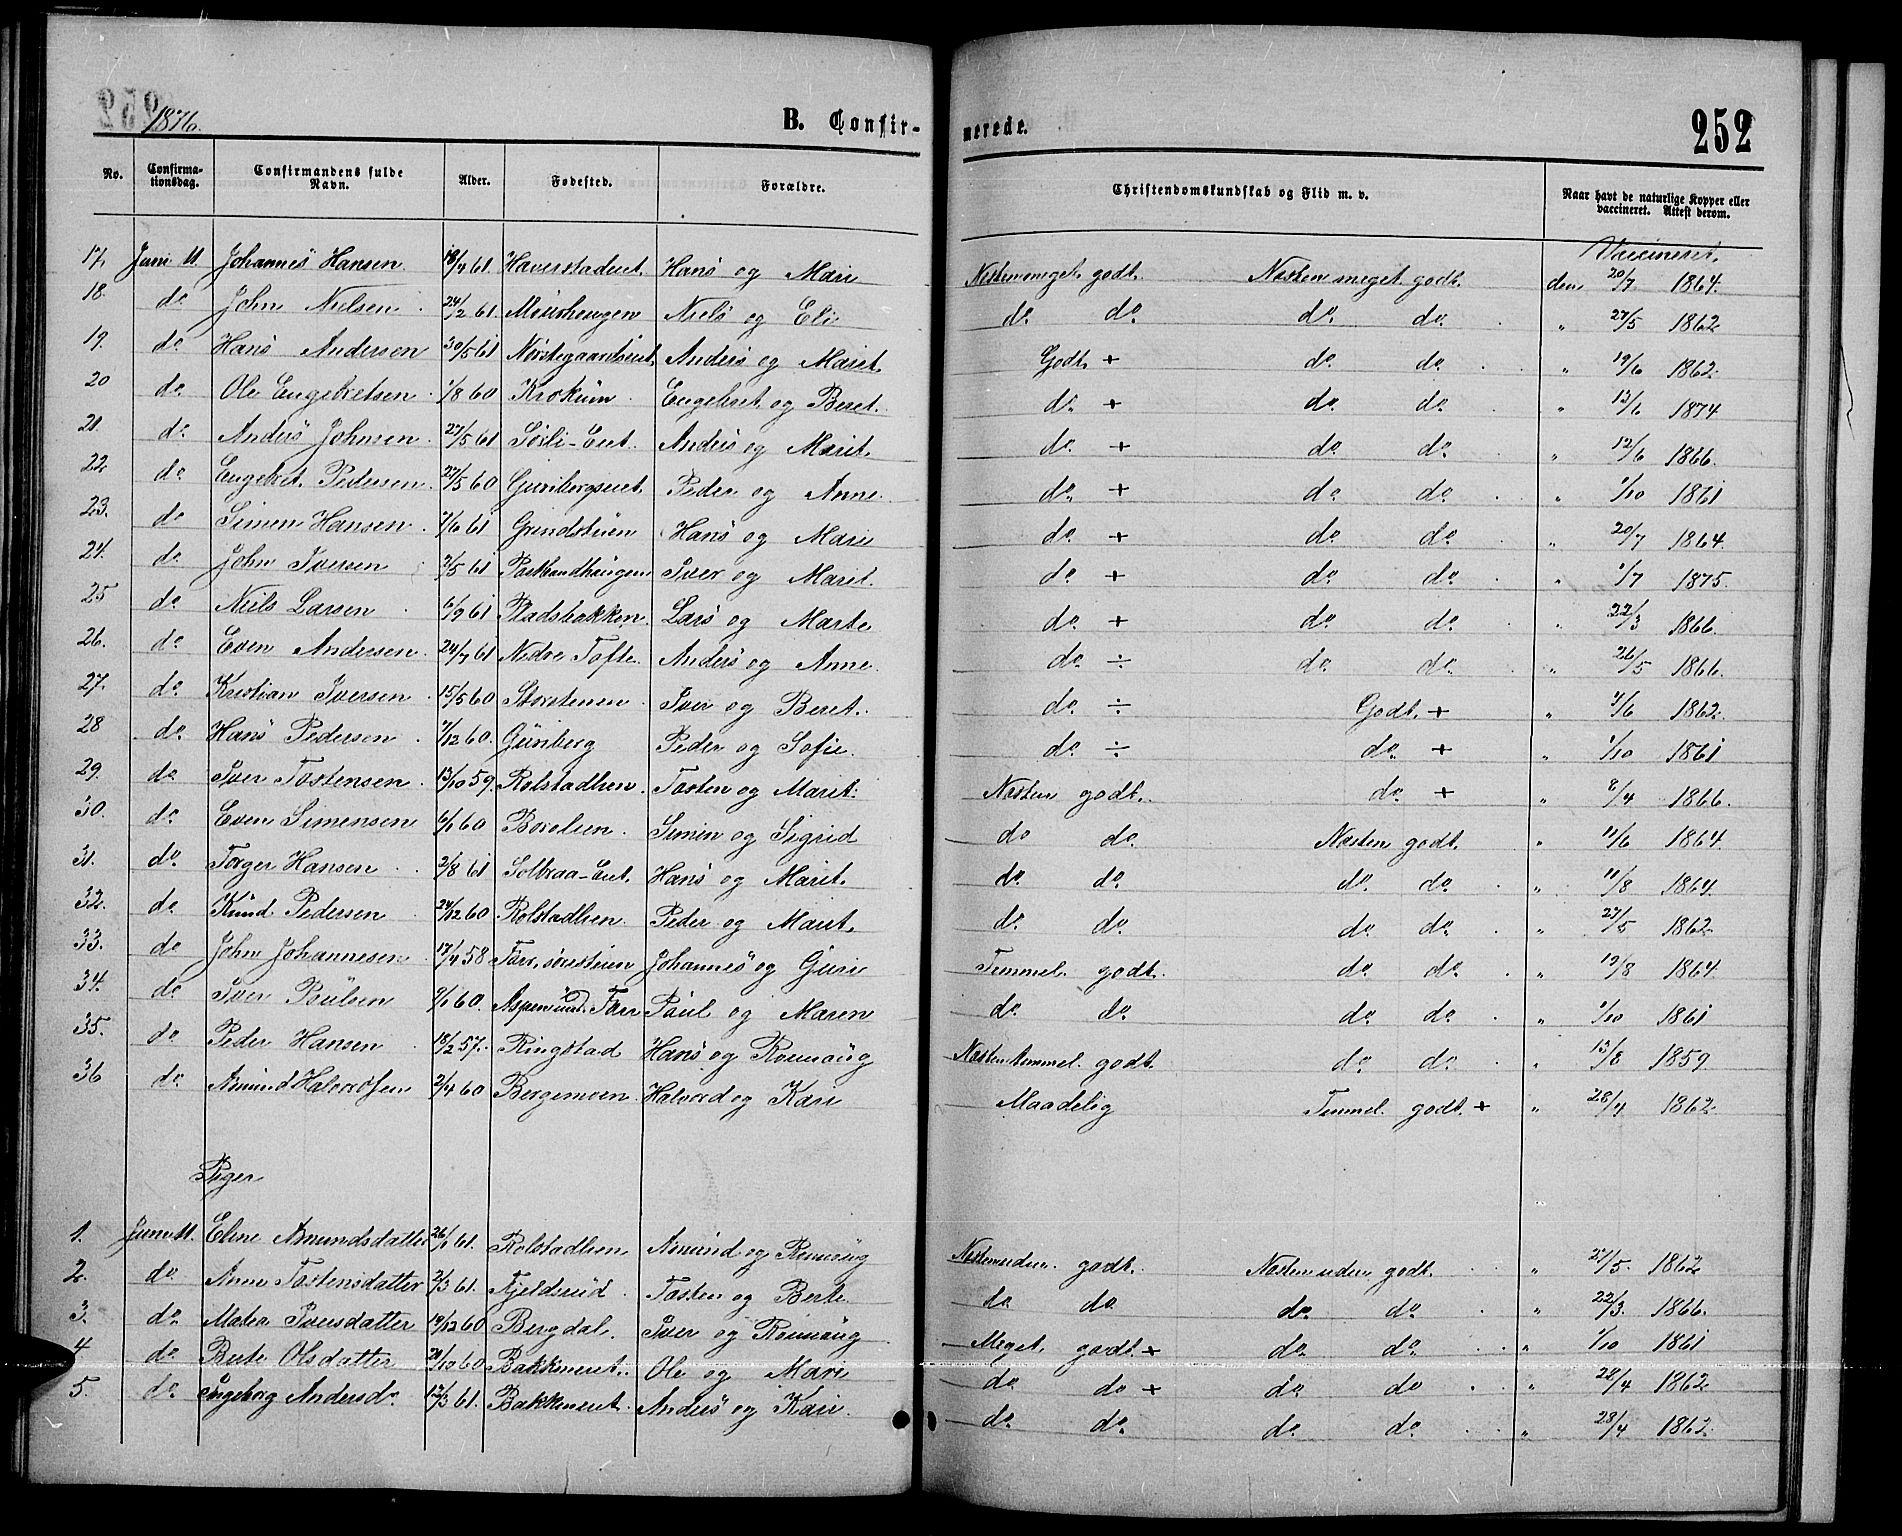 1876. B. Confirmerede. 252
No. Confirmationsdag. Confirmandens fulde Navn. Alder. Fødested. Forældre. Christendomskundskab og Flid m. v. Naar havt de naturlige Kopper eller vaccineret. Attest derom.
Vaccineret
17. Juni 11. Johannes Hansen 18/4 61. Haverstadeiet Hans og Mari Næsten meget godt. Næsten meget godt. den 20/7 1864.
18. do John Nielsen 24/2 61. Niels og Eli do. do. do. do. " 27/5 1862
19. do. Hans Andersen 30/5 61 Norstegaardseiet Anders og Marit. Godt + do. do. " 19/6 1862.
20 do. Ole Engebretsen 1/8 60 Krokum Engebret og Beret. do. + do. do. " 13/6 1874
21. do. Anders Johnsen 27/5 61 Sørli-Eiet. Anders og Marit. do. + do. do. " 12/6 1866.
22 do. Engebret Pedersen 27/5 60 Gunbergseiet Peder og Anne. do. + do. do. " 1/10 1861
23. do Simen Hansen 7/6 61 Grindstuen Hans og Mari do. + do. do. " 20/7 1864.
24. do. John Iversen 2/5 61 Iver og Marit. do. + do. do. " 1/7 1875.
25 do. Niels Larsen 6/9 61 Pladsbakken Lars og Marte do. + do. do. " 22/3 1866.
26. do. Even Andersen 24/7 61 Nedre Tofte Anders og Anne do. ÷ do. do. " 26/5 1866.
27. do. Kristian Iversen 15/5 60 Storstenen Iver og Beret. do. ÷ Godt. + " 4/6 1862.
28 do. Hans Pedersen 7/12 60. Gunberg Peder og Sofie. do. ÷ do. + " 1/10 1861
29. do. Iver Tostensen 13/10 59. Rolstadlien Tosten og Marit. Næsten godt. do. + " 8/4 1866.
30. do. Even Simensen 6/1 60 Borelien Simen og Sigrid do do. Næsten godt. " 11/6 1864.
31. do. Torger Hansen 2/8 61 Solbraa-Eiet. Hans og Marit. do. do. do. do. " 11/8 1864.
32. do. Knud Pedersen 24/12 60 Rolstadlien Peder og Marit. do. do. do. do. " 27/5 1862
33. do John Johannesen 17/4 58 Johannes og Guri Temmel. godt. do. do. " 19/8 1864.
34. do Iver Paulsen 9/1 60. Paul og Maren do. do. do. do. " 1/10 1861
35. do Peder Hansen 18/2 57. Ringstad Hans og Rønnaug Næsten temmel. godt. do. do. " 13/8 1859.
36 do. Amund Halvorsen 2/4 60 Bergemoen Halvord og Kari Maadelig Temmel. godt. + " 28/4 1862.
Piger
1. Juni 11. Eline Amundsdatter 26/1 61. Rolstadlien Amund og Rønnaug Næsten uden. godt. Næsten uden godt. " 27/5. 1862
2. do. Anne Tostensdatter 2/3 61. Fjeldrud Tosten og Berte do do do do. " 22/3. 1866.
3. do. Matea Iversdatter 19/12 60 Bergdal. Iver og Rønnaug Meget godt + do do. " 1/10 1861
4 do. Berte Olsdatter 21/10 60 Bakkeneiet. Ole og Mari do do + do do " 28/4 1862.
5. do. Ingeborg Andersd. 12/3 61. Bakkeneiet Anders og Kari. do. do. do. do. " 28/4 1862.